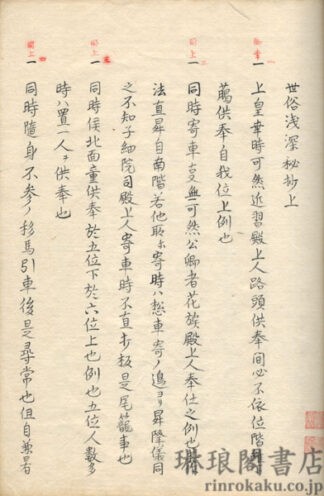 世俗浅深秘抄上
一上皇幸時可然近習殿上人路頭供奉間必不依位階
﨟供奉ノ自我位上例也
一同時寄車事無可然公卿者花族殿上人奉仕之例也
法直昇自南階若他所ニ寄時ハ懃車寄ノ邊ヨリ昇降儀同
之不知子細院司殿上人寄車時不直歩板是尾籠事也
一同時候北面童供奉於五位下於六位上也例也五位人數多
時ハ置一人ヲ供奉也
一同時随身不参ノ移馬引車後是尋常也但自兼者
琳琅閣書店
rinrokaku.co.jp